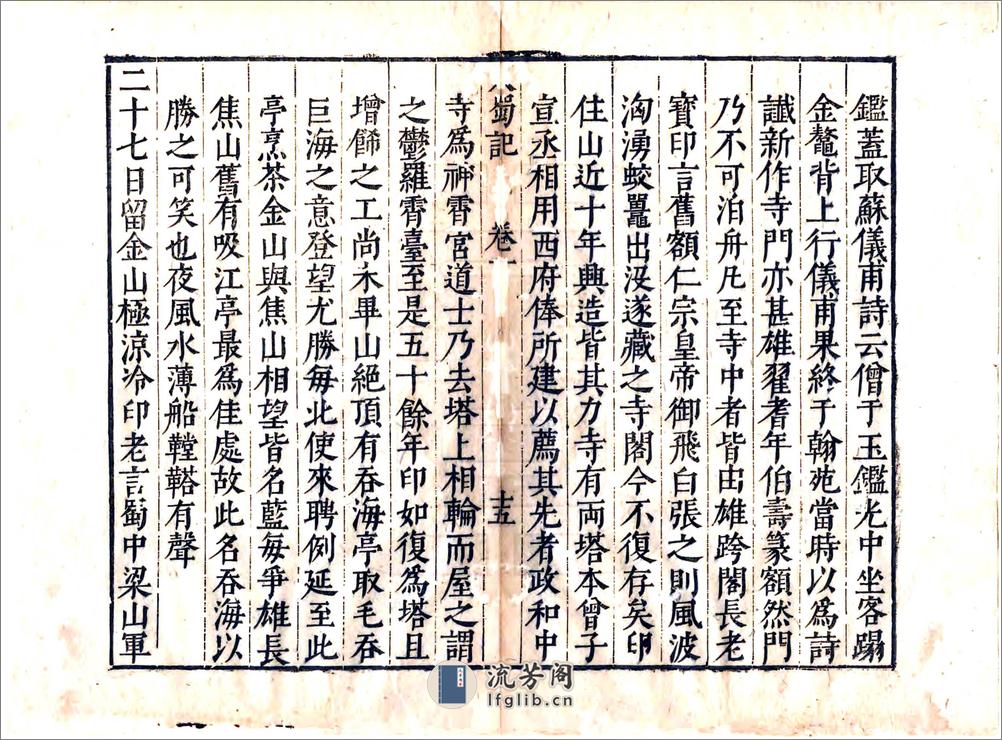 鑑蓋取蘇儀甫詩云僧于玉鑑光中坐客蹋
金鼇背上行儀甫果終于翰苑當時以爲詩
讖新作寺門亦甚雄翟耆年伯壽篆額然門
乃不可泊舟凡至寺中者皆由雄跨閣長老
寶印言舊額仁宗皇帝御飛白張之則風波
洶湧蛟鼉出沒遂藏之寺閣今不復存矣印
住山近十年興造皆其力寺有兩塔本曾子
宣丞相用西府俸所建以薦其先者政和中
蜀記 卷一 十五
寺爲神霄宮道士乃去塔上相輪而屋之謂
之鬱羅霄臺至是五十餘年印如復爲塔且
增飾之工尚未畢山絕頂有吞海亭取毛吞
巨海之意登望尤勝每北使來聘例延至此
亭烹茶金山與焦山相望皆名藍每爭雄長
焦山舊有吸江亭最爲佳處故此名吞海以
勝之可笑也夜風水薄船鞺鞳有聲
二十七日留金山極涼冷印老言蜀中梁山軍
流芳閣
lfglib.cn